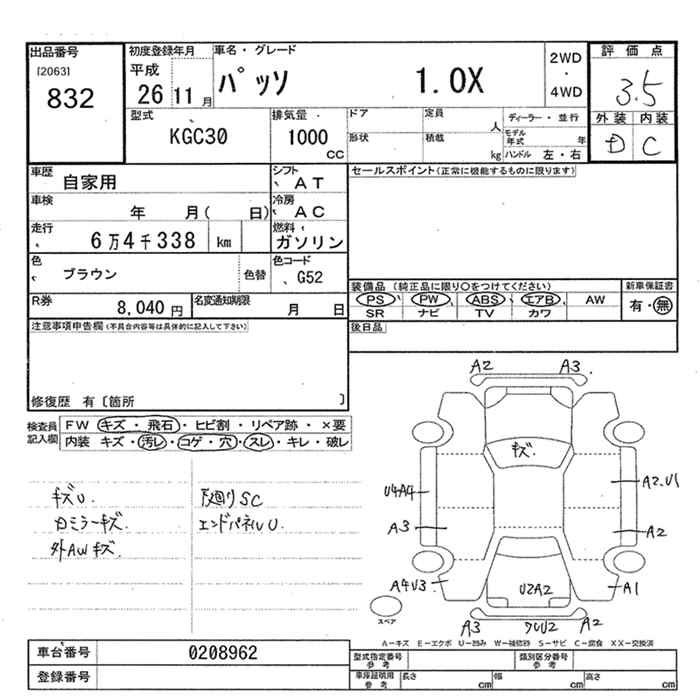 出品番号
[2063]
832
初度登録年月
平成
26 11 月
車名・グレード
パッソ 1.0X
2WD
・
4WD
評価点
3.5
外装 内装
D C
型式
KGC30
排気量
1000
CC
ドア
定員
人
形状
積載
kg
ディーラー・並行
モデル
年式 年
ハンドル 左・右
車歴
自家用
シフト
AT
車検
年 月( 日)
冷房
AC
走行
6万4千338 km
燃料
ガソリン
色
ブラウン
色替
色コード
G52
R券
8,040 円
名変通知期限
月 日
セールスポイント(正常に機能するものに限ります)
装備品 (純正品に限り○をつけてください)
PS PW ABS エアB AW
SR ナビ TV カワ
新車保証書
有・無
後日品
注意事項申告欄(不具合内容等は具体的に記入して下さい)
修復歴 有〔箇所 〕
検査員
記入欄
FW キズ・飛石・ヒビ割・リペア跡・×要
内装 キズ・汚レ・コゲ・穴・スレ・キレ・破レ
キズU
カミラーキズ
外AWキズ
下廻りSC
エンドパネルU
A2 A3
キズ
U4A4
A2.U1
A3
A2
A4U3
U2A2
A1
スペア
A3
A2
A-キズ E-エクボ U-凹み W-補修跡 S-サビ C-腐食 XX-交換済
車台番号
0208962
登録番号
型式指定番号
参考
類別区分番号
参考
車庫証明用
参考
長さ cm
幅 cm
高さ cm